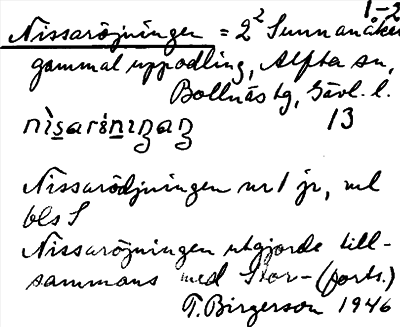 1-2
Nissaröjningen = 2² Sunnanåker
gammal uppodling, Alfta sn,
Bollnäs tg, Gävl. l.
13
Nissarödjningen nr 1 jr, vid
bls S
Nissaröjningen utgjorde till-
sammans med Stor- (forts.)
T. Birgerson 1946